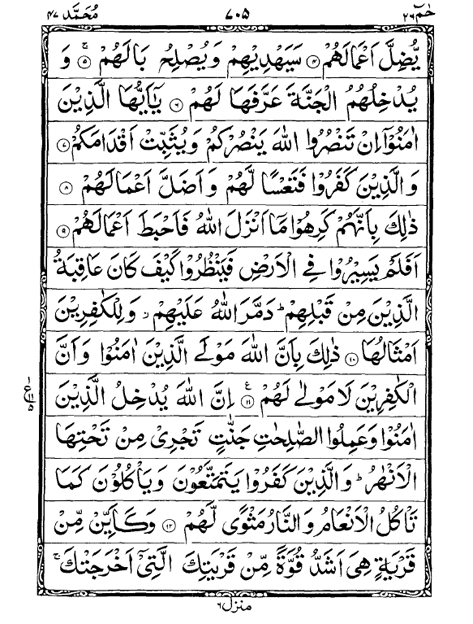 حٰمٓ ٢٦ ٧٠٥ مُحَمَّد ٤٧
يُّضِلَّ اَعْمَالَهُمْ ﴿۴﴾ سَيَهْدِيْهِمْ وَيُصْلِحُ بَالَهُمْ ۚ ﴿۵﴾ وَ
يُدْخِلُهُمُ الْجَنَّةَ عَرَّفَهَا لَهُمْ ﴿۶﴾ يٰۤاَيُّهَا الَّذِيْنَ
اٰمَنُوْۤا اِنْ تَنْصُرُوا اللّٰهَ يَنْصُرْكُمْ وَيُثَبِّتْ اَقْدَامَكُمْ ﴿۷﴾
وَالَّذِيْنَ كَفَرُوْا فَتَعْسًا لَّهُمْ وَاَضَلَّ اَعْمَالَهُمْ ﴿۸﴾
ذٰلِكَ بِاَنَّهُمْ كَرِهُوْا مَاۤ اَنْزَلَ اللّٰهُ فَاَحْبَطَ اَعْمَالَهُمْ ﴿۹﴾
اَفَلَمْ يَسِيْرُوْا فِي الْاَرْضِ فَيَنْظُرُوْا كَيْفَ كَانَ عَاقِبَةُ
الَّذِيْنَ مِنْ قَبْلِهِمْ ؕ دَمَّرَ اللّٰهُ عَلَيْهِمْ ؗ وَلِلْكٰفِرِيْنَ
اَمْثَالُهَا ﴿۱۰﴾ ذٰلِكَ بِاَنَّ اللّٰهَ مَوْلَي الَّذِيْنَ اٰمَنُوْا وَاَنَّ
الْكٰفِرِيْنَ لَا مَوْلٰى لَهُمْ ﴿۱۱﴾ اِنَّ اللّٰهَ يُدْخِلُ الَّذِيْنَ
اٰمَنُوْا وَعَمِلُوا الصّٰلِحٰتِ جَنّٰتٍ تَجْرِيْ مِنْ تَحْتِهَا
الْاَنْهٰرُ ؕ وَالَّذِيْنَ كَفَرُوْا يَتَمَتَّعُوْنَ وَيَاْكُلُوْنَ كَمَا
تَاْكُلُ الْاَنْعَامُ وَالنَّارُ مَثْوًى لَّهُمْ ﴿۱۲﴾ وَكَاَيِّنْ مِّنْ
قَرْيَةٍ هِيَ اَشَدُّ قُوَّةً مِّنْ قَرْيَتِكَ الَّتِيْۤ اَخْرَجَتْكَ ۚ
منزل ٦